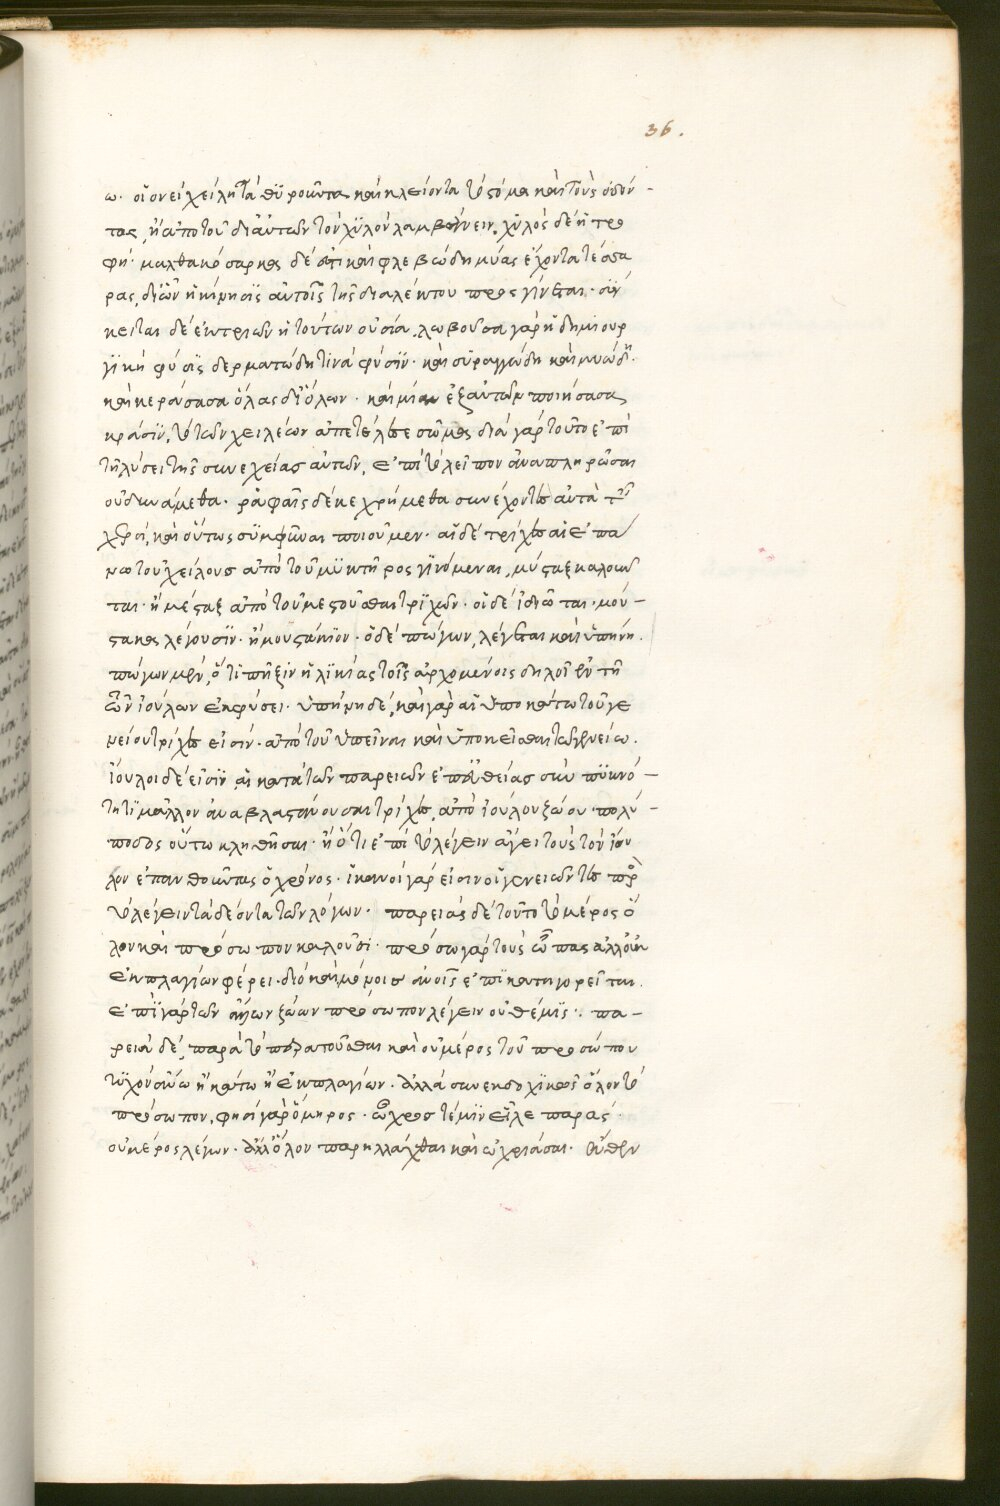 36.
ω. οἷον εἰ χείλη τὰ θϋροῦντα καὶ κλείοντα τὸ στόμα καὶ τοὺς ὀδόν-
τας, ἢ ἀπὸ τοῦ δι' αὐτῶν τὸν χϋλὸν λαμβάνειν. χϋλὸς δὲ ἡ τρο
φή. μαλθακὸ σαρκος δέ ἐστι καὶ φλεβώδη μύας ἔχοντα τέσσα
ρας, δι' ὧν ἡ κίνησϊς αὐτοῖς τῆς διαλέκτου προσγίνεται. σύγ
κειται δὲ ἐκ τριῶν ἡ τούτων οὐσία. λαβοῦσα γὰρ ἡ δημιουρ
γϊκὴ φύσϊς δερματώδη τινὰ φύσϊν. καὶ συραγγώδη καὶ μυώδη.
καὶ κεράσασα ὅλας δι' ὅλων. καὶ μίαν ἐξ αὐτῶν ποιήσασα
κρᾶσϊν, τὸ τῶν χειλέων ἀπετέλεσε σῶμα. διὰ γὰρ τοῦτο ἐπὶ
τῇ λύσει τῆς συνεχείας αὐτῶν, ἐπὶ τὸ λεῖπον ἀναπληρῶσαι
οὐ δυνάμεθα. ῥαφαῖς δὲ κεχρήμεθα συνέχοντες αὐτὰ τῇ
χειρί, καὶ οὕτως σύμφῦναι ποιοῦμεν. αἱ δὲ τρίχες αἱ ἐπά
νω τοῦ χείλους ἀπὸ τοῦ μϋκτῆρος γϊνόμεναι, μύσταξ καλοῦν
ται. ἢ μέσταξ ἀπὸ τοῦ μεστοῦσθαι τρϊχῶν. οἱ δὲ ἰδιῶται. μού-
στακας λέγουσϊν. ἢ μουστάκϊον. ὁ δὲ πώγων, λέγεται καὶ ὑπήνη.
πώγων μὲν, ὅτι πῆξϊν ἡλϊκίας τοῖς ἀρχομένοις δηλοῖ ἐν τῇ
τῶν ἰούλων ἐκφύσει. ὑπήνη δὲ, καὶ γὰρ αἱ ὑποκάτω τοῦ γε
νείου τρίχες εἰσίν. ἀπὸ τοῦ ὑπεῖναι καὶ ὑποκεῖσθαι τῷ γενείω.
ἴουλοι δέ εἰσϊν αἱ κατὰ τῶν παρειῶν ἐπ' εὐθείας σὺν πϋκνό-
τητϊ μᾶλλον ἀναβλαστάνουσαι τρίχες, ἀπὸ ἰούλου ζώου πολύ-
ποδος οὕτω κληθῆσαι. ἢ ὅτι ἐπὶ τὸ λέγειν ἄγει τοὺς τὸν ἴου
λον ἐπανθοῦντας ὁ χρόνος. ἱκανοὶ γάρ εἰσιν οἱ γενειῶντες πρὸς
τὸ λέγειν τὰ δέοντα τῶν λόγων. παρειὰς δὲ τοῦτο τὸ μέρος ὅ
λον καὶ πρόσωπον καλοῦσϊ. πρόσω γὰρ τοὺς ὦπας ἀλλ' οὐκ
ἐκ πλαγίων φέρει. διὸ καὶ μόνοις ἀνοῖς ἐπϊκατηγορεῖται.
ἐπὶ γὰρ τῶν ἄλλων ζώων πρόσωπον λέγειν οὐ θέμϊς. πα-
ρειὰ δὲ, παρὰ τὸ παρατοῦσθαι καὶ οὐ μέρος τοῦ προσώπου
τϋχὸν ἄνω ἢ κάτω ἢ ἐκ πλαγίων. ἀλλὰ συνεκδοχϊκῶς ὅλον τὸ
πρόσωπον, φησὶ γὰρ ὅμηρος. ὦχρος τέ μϊν εἷλε παρειάς.
οὐ μέρος λέγων. ἀλλ' ὅλον παρηλλάχθαι καὶ ὠχριάσαι. ὅθεν